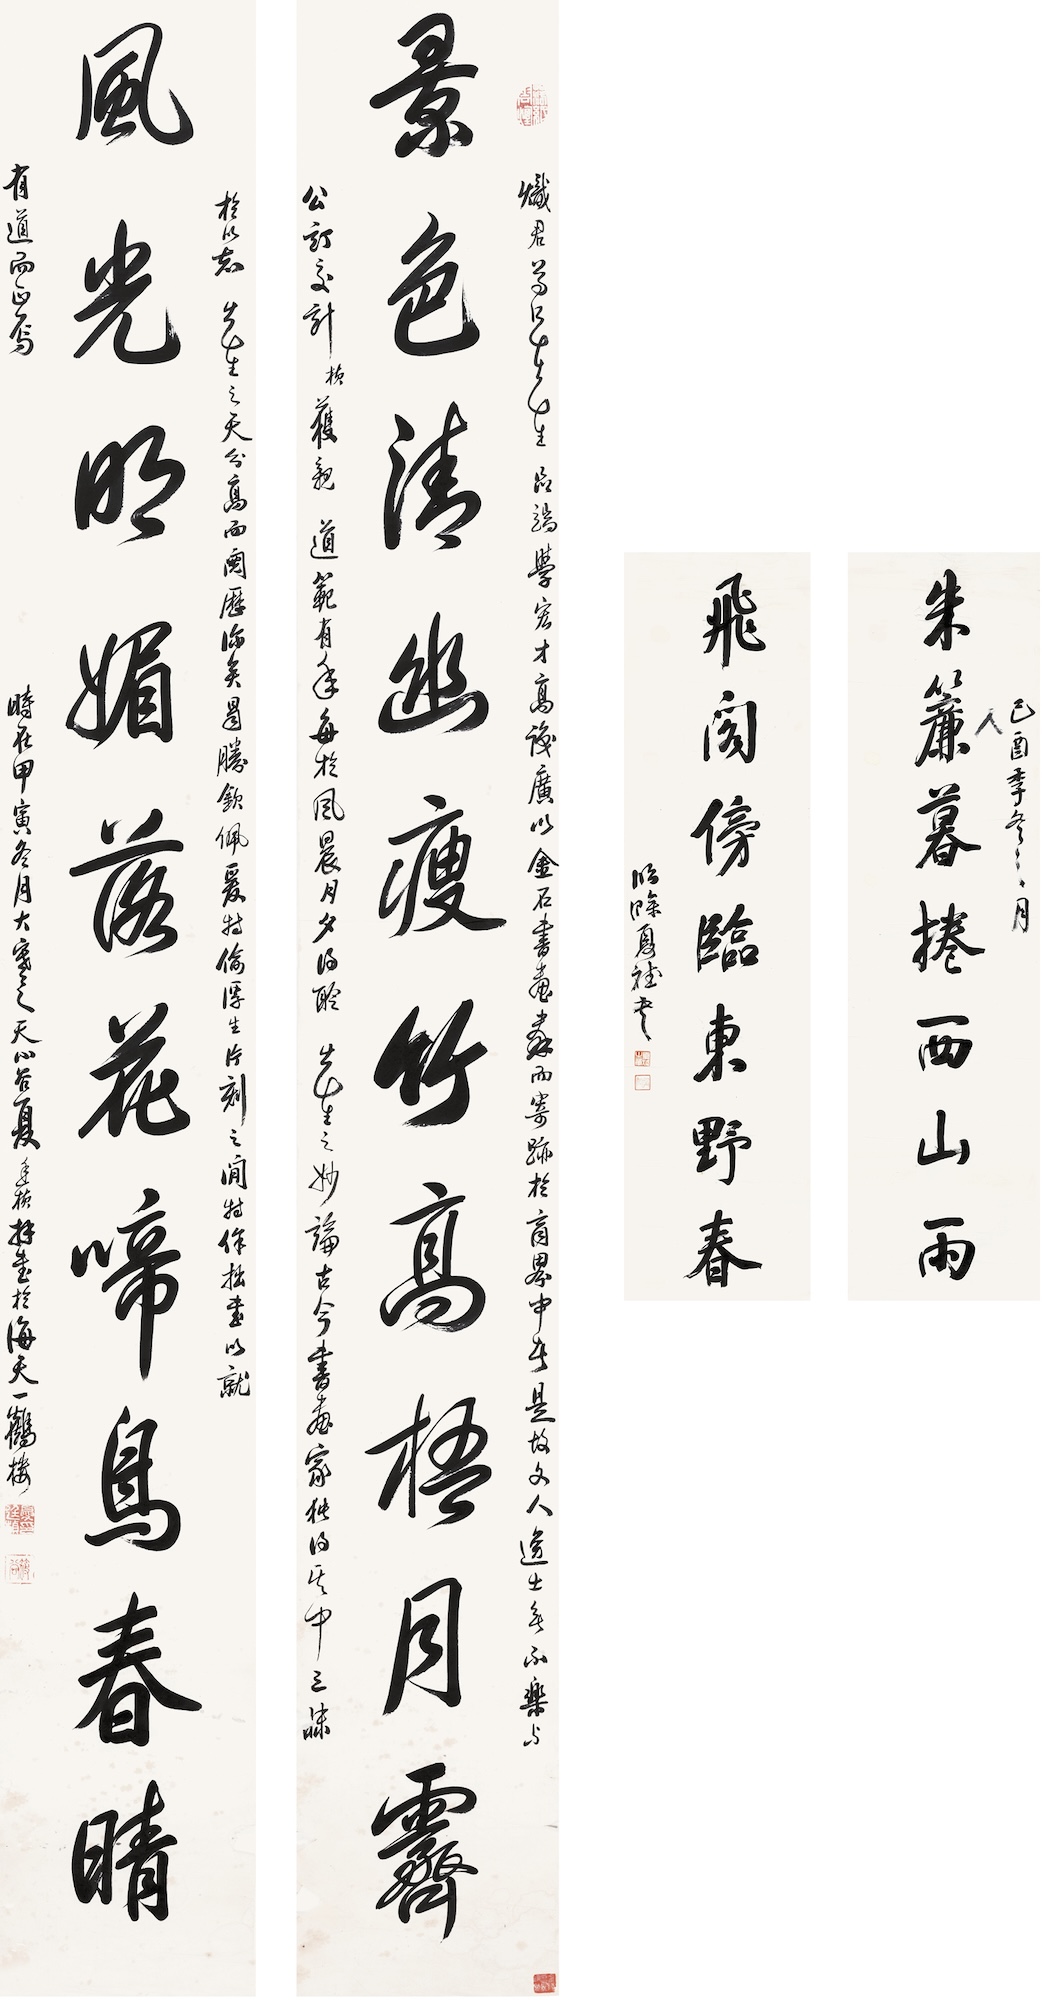 己酉季冬之月
朱簾暮捲西山雨
人
飛閣傍臨東野春
熾君尊兄先生 品端學宏才高識廣以金石書畫癖而寄跡於商界中者是故文人逸士無不樂與
景色清幽瘦竹高梧月霽
公訂交計 楨獲親 道範有年每於風晨月夕得聆 先生之妙論古今書畫家獨得其中三昧
於以知 先生之天分高而閱歷深矣曷勝欽佩爰特偷浮生片刻之閒特作拙書以就
風光明媚落花啼鳥春晴
有道而正焉 時在甲寅冬月大寒之天 谷夏 楨拜書於海天一鶴樓